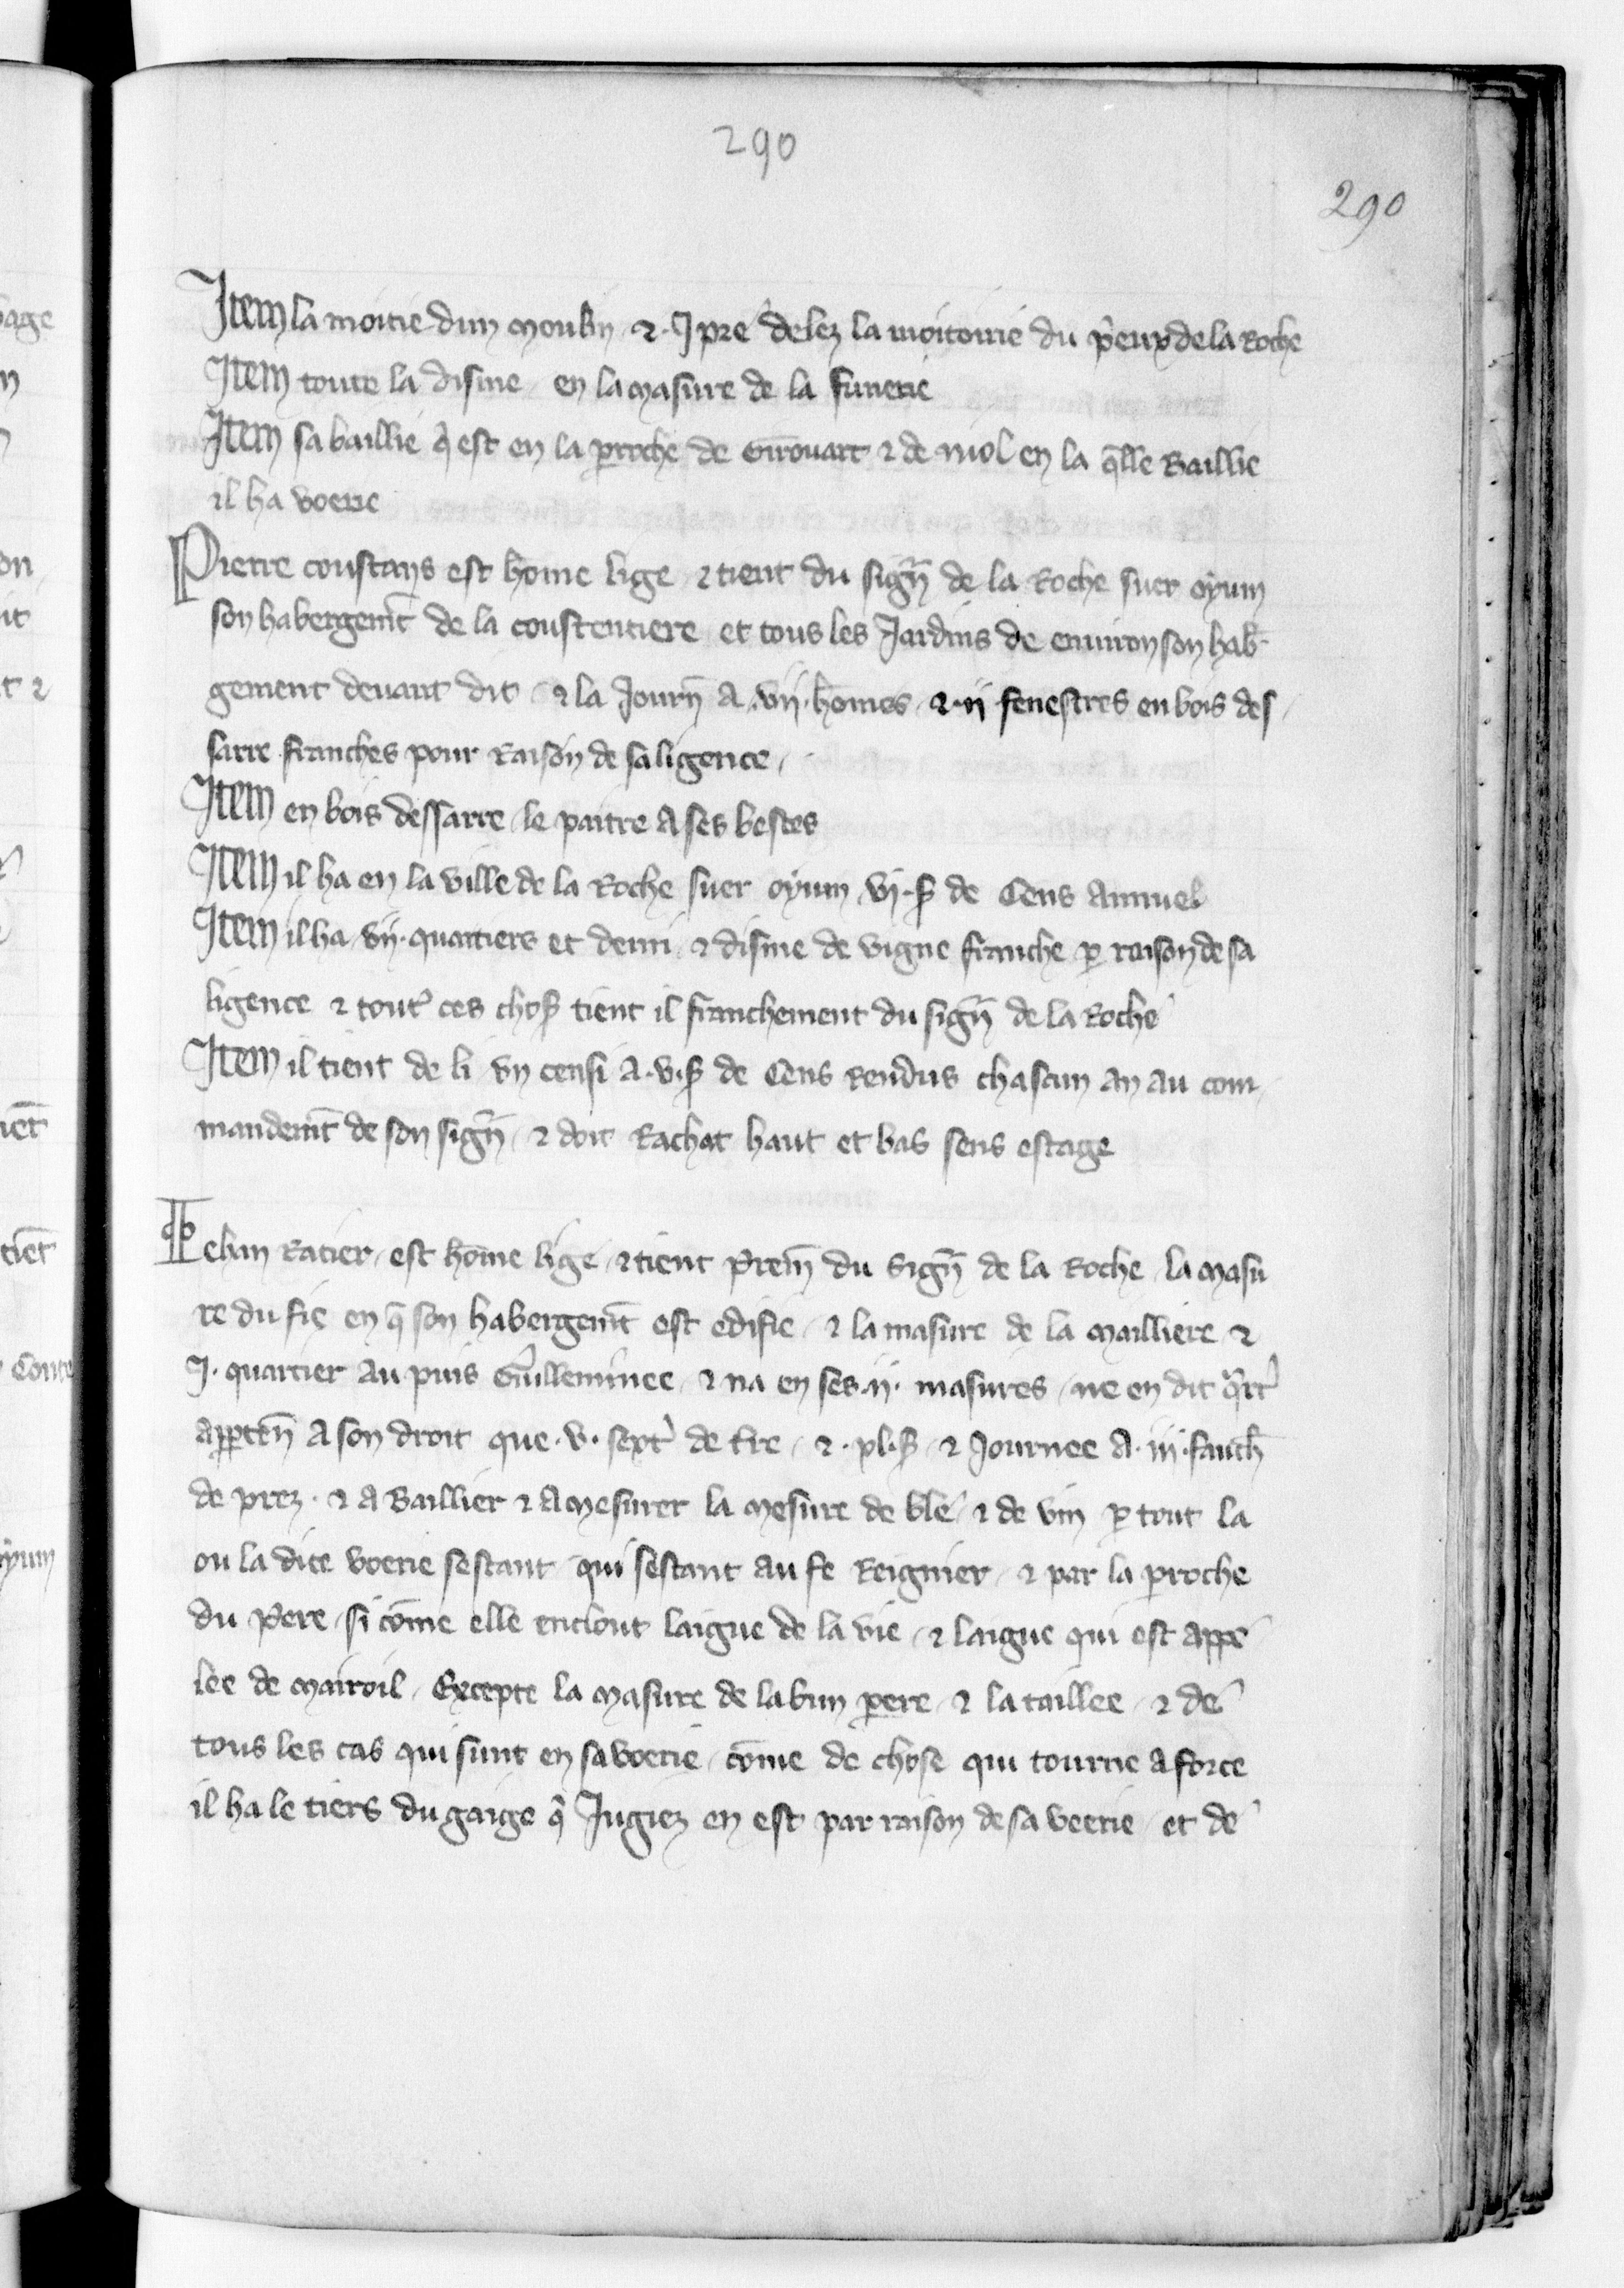 290
290
Item la moitie dun moulin & · I pre delez la moitoirie du p̾eux de la Roche
Item toute la disme en la masure de la funerie
Item sa baillie q̾ est en la p̱roche de Girouart & de niol en la q̄lle Baillie
il ha voerie
Pierre constans est hōme lige & tient du sign̄ de la Roche suer oyum
son habergem̄t de la constentiere et tous les Jardins de environ son hab̾
gement devant dit & la Journ̄ A · vii · hōmes & · ii fenestres en bois des
sarre franches pour Raison de sa ligence
Item en bois dessarre le paitre A ses bestes
Item il ha en la ville de la Roche suer oyum vi · s̄ de Cens Annuel
Item il ha vii · quartiers et demi & disme de vigne franche p̱ raison de sa
ligence & tout̾ ces chos̄ tient il franchement du sign̄ de la Roche
Item il tient de li vn censi A · v · s̄ de Cens Rendus chascun an au com
mandem̄t de son sign̄ & doit Rachat haut et bas sens estage
Jehan Ratier est hōme lige & tient Prem̄ du Sign̄ de la Roche la masu
re du fie en q̄ son habergem̄t est edifie & la masure de la mailliere &
I · quartier Au puis Guilleminee & na en ses · ii · masures ne en dit q̾rt̾
app̱ten̄ A son droit que · v · sext̾ de t̄re & · xl · s̄ & Journee A · iii · fauch̄
de prez · & A Baillier & A mesurer la mesure de ble & de vin p̱ tout la
ou la dite voerie sestant qui sestant au fe Reignier & par la p̱roche
du Pere si cōme elle enclout laigue de la vie & laigue qui est appe
lee de mairoil Excepte la masure de labun pere & la taillee & de
tous les cas qui sunt en sa voerie cōme de chose qui tourne A force
il ha le tiers du gaige q̾ Jugiez en est par raison de sa veerie et de